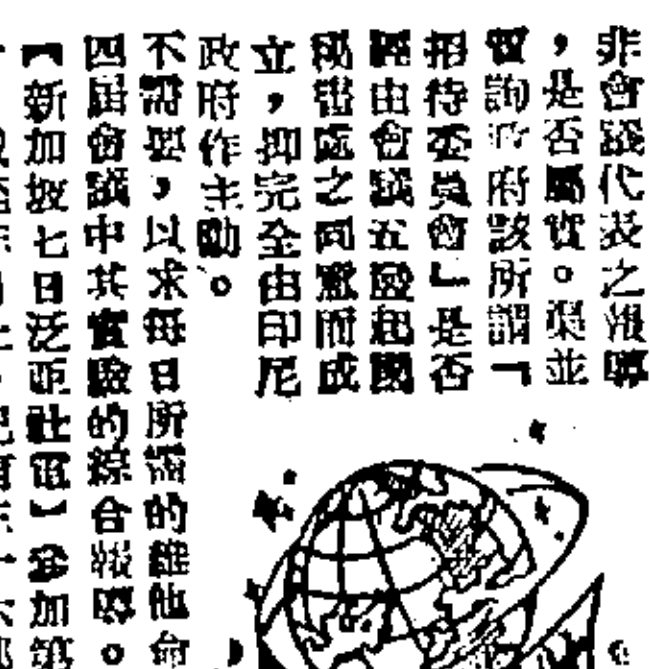 非會議代表之報導
，是否屬實。渠並
質詢政府該所謂「
招待委員會」是否
經由會議五國起國
秘書處之同意而成
立，抑完全由印尼
政府作主動。
不需要，以求每日所需的維他命
四屆會議中其實驗的綜合報導。
【新加坡七日泛亞社電】參加第